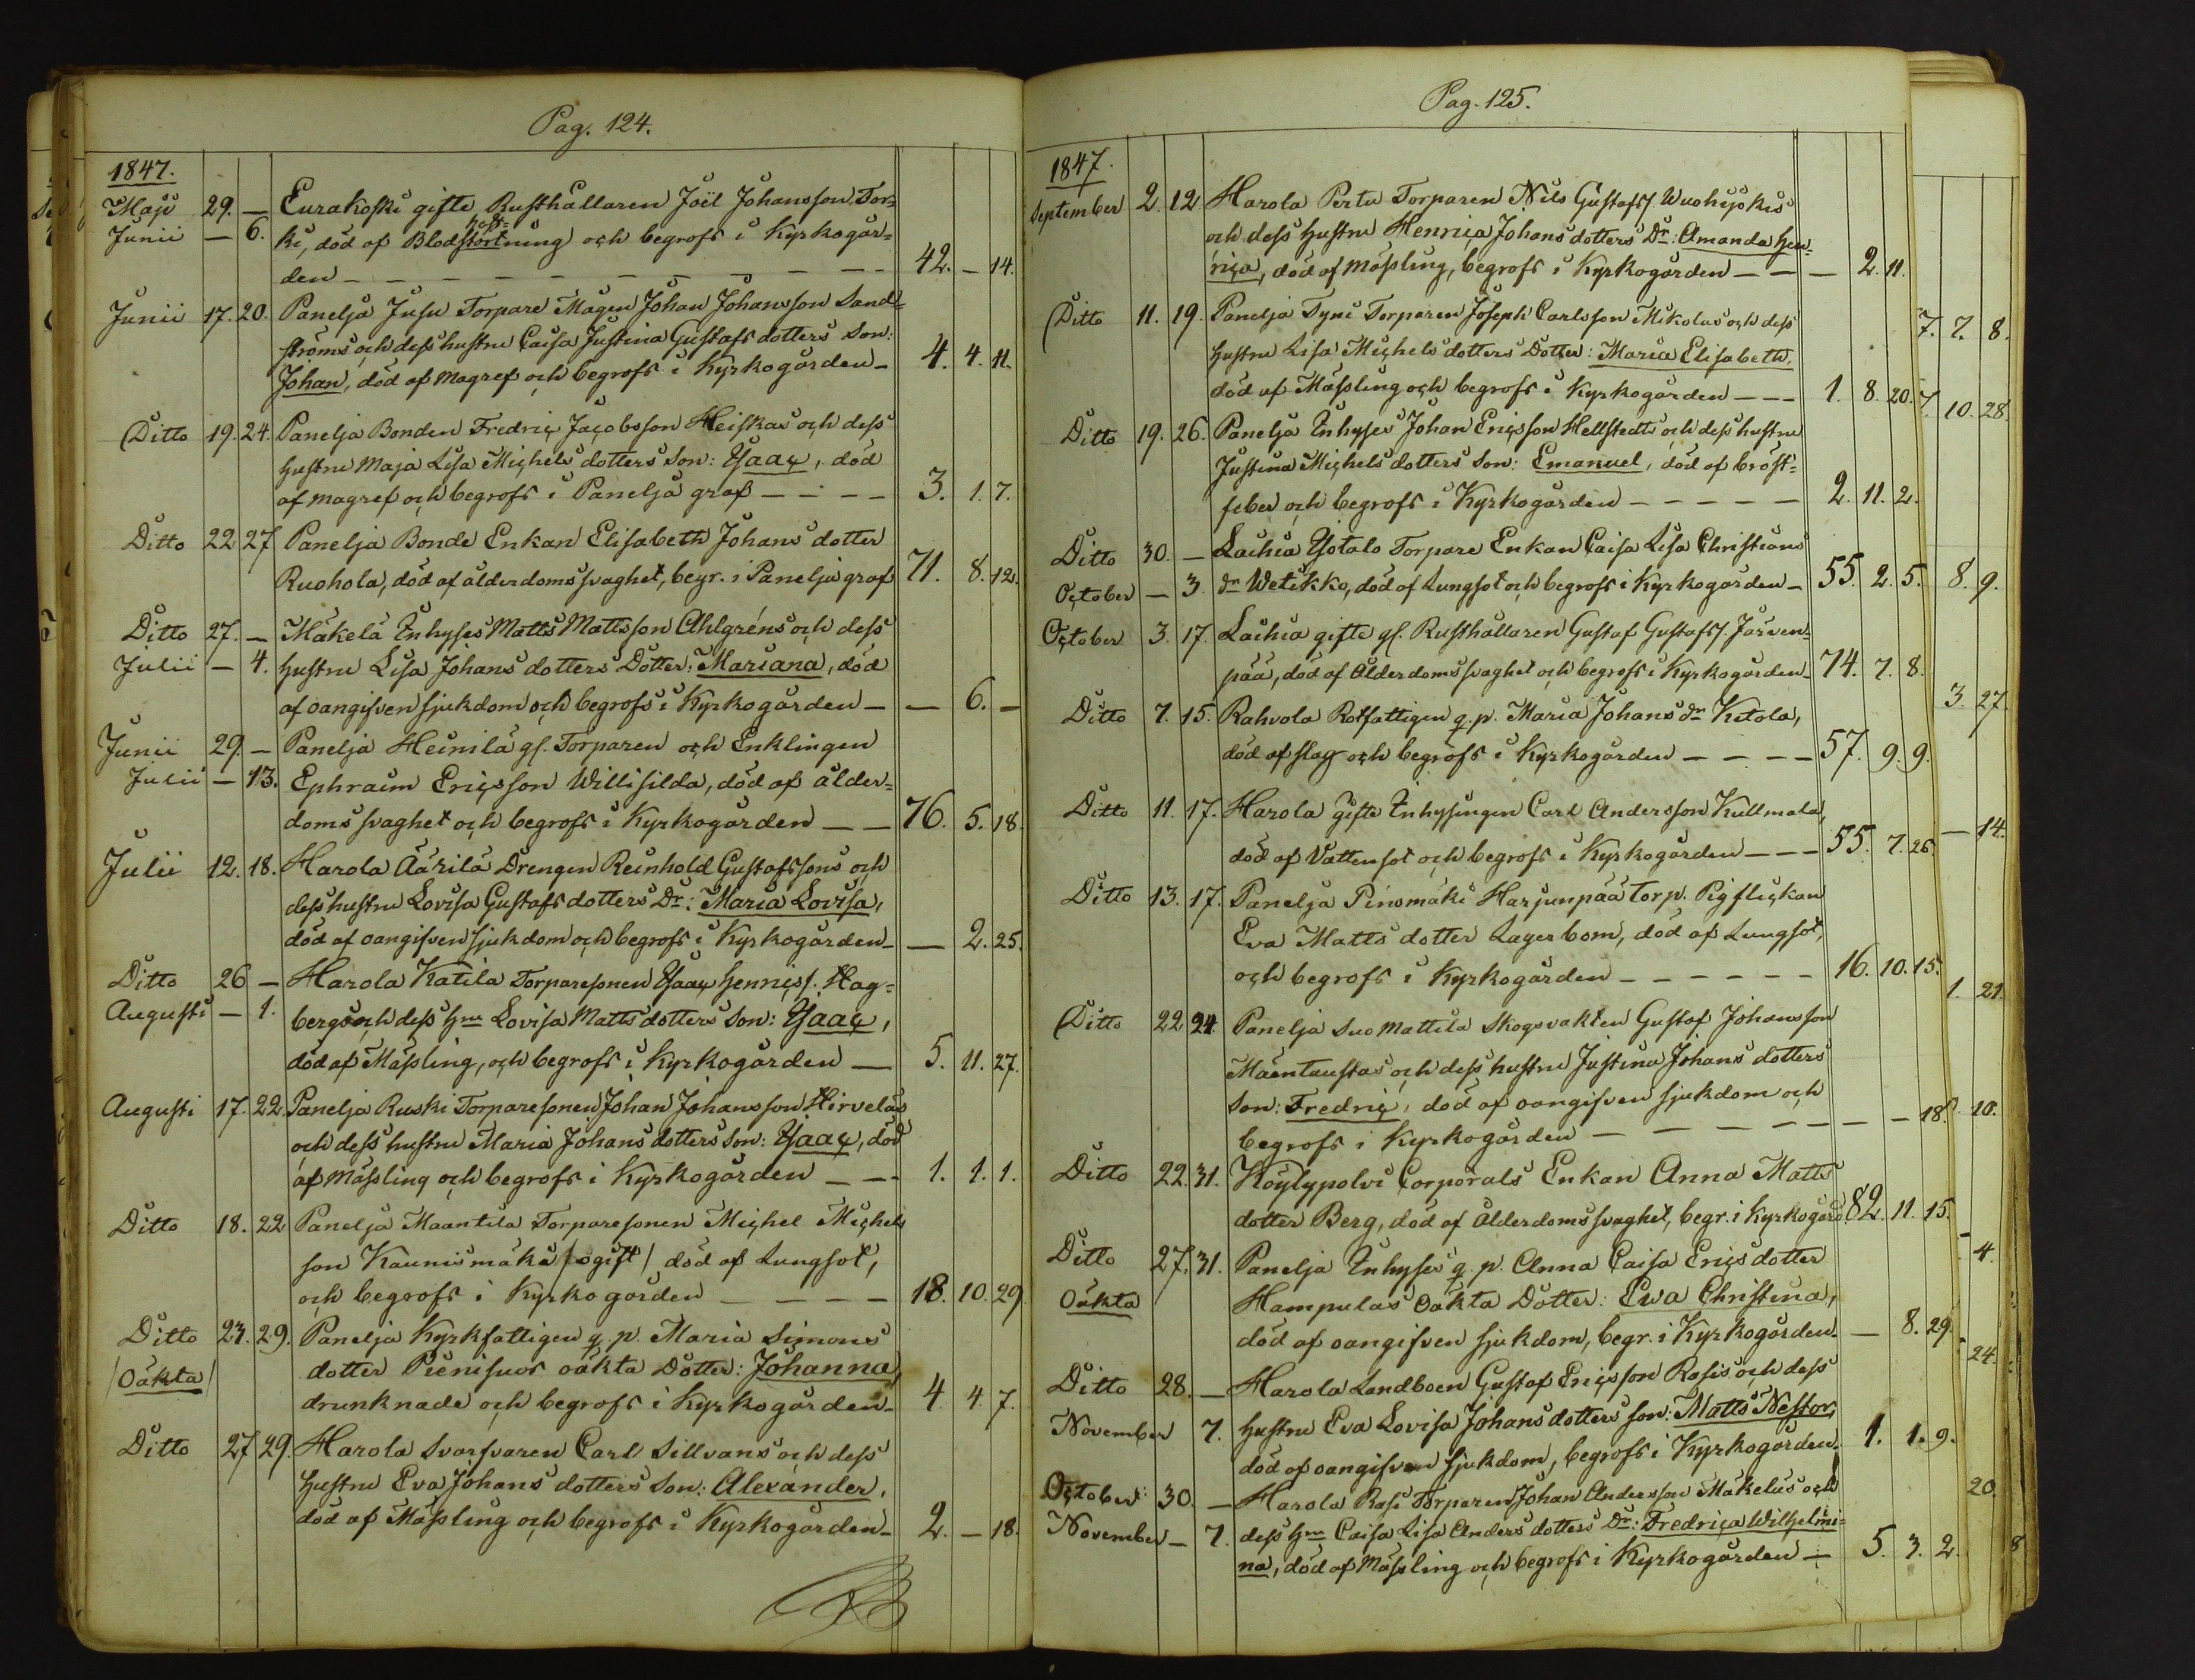 Pag. 124.
1847.
Maji 29. — Eurakoski gifte Rusthållaren Joël Johansson Tor=
host=
Junii — 6. ki, död af Blodstörtning och begrofs i Kyrkogår=
den — — — — — — — — 42. — 14.
Junii 17. 20. Panelja Jusu Torpare Mågen Johan Johansson Sand=
ströms och dess hustru Caisa Justina Gustafs dotters Son:
Johan, död af magref och begrofs i Kyrkogården — 4. 4. 11.
Ditto 19. 24. Panelja Bonden Fredric Jacobsson Heiskas och dess
hustru Maja Lisa Michels dotters Son: Isaac, död
af magref och begrofs i Panelja graf — — — — 3. 1. 7.
Ditto 22 27 Panelja Bonde Enkan Elisabeth Johans dotter
Ruohola, död af ålderdoms svaghet, begr. i Panelja graf 71. 8. 12.
Ditto 27. — Mäkelä Inhyses Matts Mattsson Ahlgréns och dess
Julii — 4. hustru Lisa Johans dotters Dotter: Mariana, död
af oangifven sjukdom och begrofs i Kyrkogården — — 6. —
Junii 29. — Panelja Heinilä gl. Torparen och Enklingen
Julii — 13. Ephraim Ericsson Willisilda, död af ålder=
doms svaghet och begrofs i Kyrkogården — — 76. 5. 18.
Julii 12. 18. Harola Äärilä Drengen Reinhold Gustafssons och
dess hustru Lovisa Gustafs dotters Dr: Maria Lovisa,
död af oangifven sjukdom och begrofs i Kyrkogården — — 2. 25.
Ditto 26 — Harola Katila Torparesonen Isaac Henrics. Hag=
Augusti — 1. bergs och dess Hru Lovisa Matts dotters Son: Isaac,
död af Mässling, och begrofs i Kyrkogården — 5. 11. 27.
Augusti 17. 22. Panelja Ruski Torparesonen Johan Johansson Hirveläs
och dess hustru Maria Johans dotters Son: Isaac, död
af Mässling och begrofs i Kyrkogården — — 1. 1. 1.
Ditto 18. 22 Panelja Maantila Torparesonen Michel Michels
son Kaunismäki /ogift/ död af Lungsot,
och begrofs i Kyrkogården — — — — 18. 10. 29
Ditto 23. 29. Panelja Kyrkfattigen q. p. Maria Simons
/Oäkta/ dotter Pienisuos oäkta Dotter: Johanna,
drunknade och begrofs i Kyrkogården — 4 4. 7.
Ditto 27 29. Harola Svarfvaren Carl Sillvans och dess
hustru Eva Johans dotters Son: Alexander,
död af Mässling och begrofs i Kyrkogården — 2. — 18.
Pag. 125.
1847.
September 2. 12. Harola Pertu Torparen Nils Gustafs. Wuohijokis
och dess hustru Henrica Johans dotters Dr: Amanda Hen=
rica, död af Mässling, begrofs i Kyrkogården — — — 2. 11.
Ditto 11. 19. Panelja Tyni Torparen Joseph Carlsson Mikolas och dess
hustru Lisa Michels dotters Dotter: Maria Elisabeth,
död af Mässling och begrofs i Kyrkogården — — — 1. 8. 20.
Ditto 19. 26. Panelja Inhyses Johan Ericsson Hellstedts och dess hustru
Justina Michels dotters Son: Emanuel, död af bröst=
feber och begrofs i Kyrkogården — — — — — 2. 11. 2.
Ditto 30. — Laihia Yötalo Torpare Enkan Caisa Lisa Christians
October — 3. dr Wetikko, död af Lungsot och begrofs i Kyrkogården — 55. 2. 5.
October 3. 17. Laihia gifte gl. Rusthållaren Gustaf Gustafs. Järven=
pää, död af Ålderdoms svaghet och begrofs i Kyrkogården — 74. 7. 8.
Ditto 7. 15. Rahvola Rotfattigen q. p. Maria Johans dr Ketola,
död af slag och begrofs i Kyrkogården — — — — 57. 9. 9.
Ditto 11. 17. Harola Gifte Inhysingen Carl Andersson Kullmala,
död af Vattensot och begrofs i Kyrkogården — — — 55. 7. 26.
Ditto 13. 17. Panelja Pinomäki Harjunpää torp. Pigflickan
Eva Matts dotter Lagerbom, död af Lungsot,
och begrofs i Kyrkogården — — — — — 16. 10. 15.
Ditto 22 24 Panelja Suomattila Skogsvakten Gustaf Johansson
Mäentaustas och dess hustru Justina Johans dotters
Son: Fredric, död af oangifven sjukdom och
begrofs i Kyrkogården — — — — — — — 18.
Ditto 22. 31. Köylypolvi Corporals Enkan Anna Matts
dotter Berg, död af Ålderdoms svaghet, begr. i Kyrkogård. 82. 11. 15.
Ditto 27. 31. Panelja Inhyses q. p. Anna Caisa Erics dotter
Oäkta Hampulas Oäkta Dotter: Ewa Christina,
död af oangifven sjukdom, begr. i Kyrkogården. — 8. 29.
Ditto 28. — Harola Landboen Gustaf Ericsson Rasis och dess
November 7. hustru Eva Lovisa Johans dotters son: Matts Nestor,
död af oangifven sjukdom, begrofs i Kyrkogården. 1. 1. 9.
October 30. — Harola Rasi Torparen Johan Andersson Mäkeläs och
November — 7. dess Hru Caisa Lisa Anders dotters Dr: Fredrica Wilhelmi=
na, död af Mässling och begrofs i Kyrkogården — 5. 3. 2.
7. 7. 8.
7. 10. 28.
8. 9.
3. 27.
— 14.
1. 21.
10.
4.
24.
20.
8